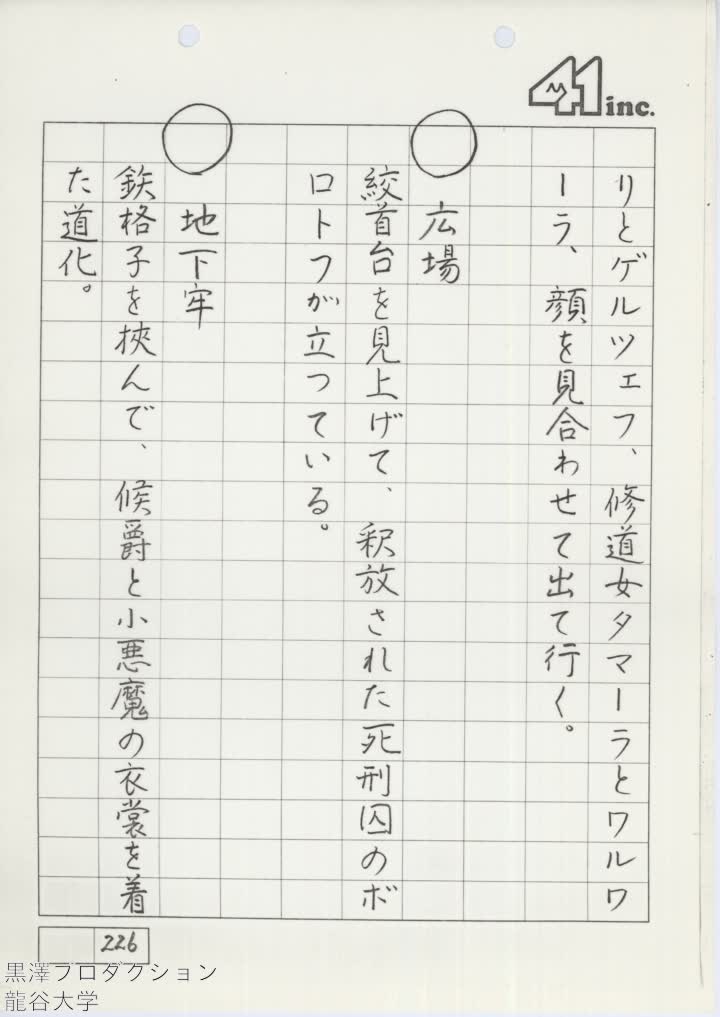 41 inc.
りとゲルツェフ、修道女タマーラとワルワ
ーラ、顔を見合わせて出て行く。
○広場
絞首台を見上げて、釈放された死刑囚のボ
ロトフが立つている。
○地下牢
鉄格子を挾んで、候爵と小悪魔の衣裳を着
た道化。
226
黒澤プロダクション
龍谷大学